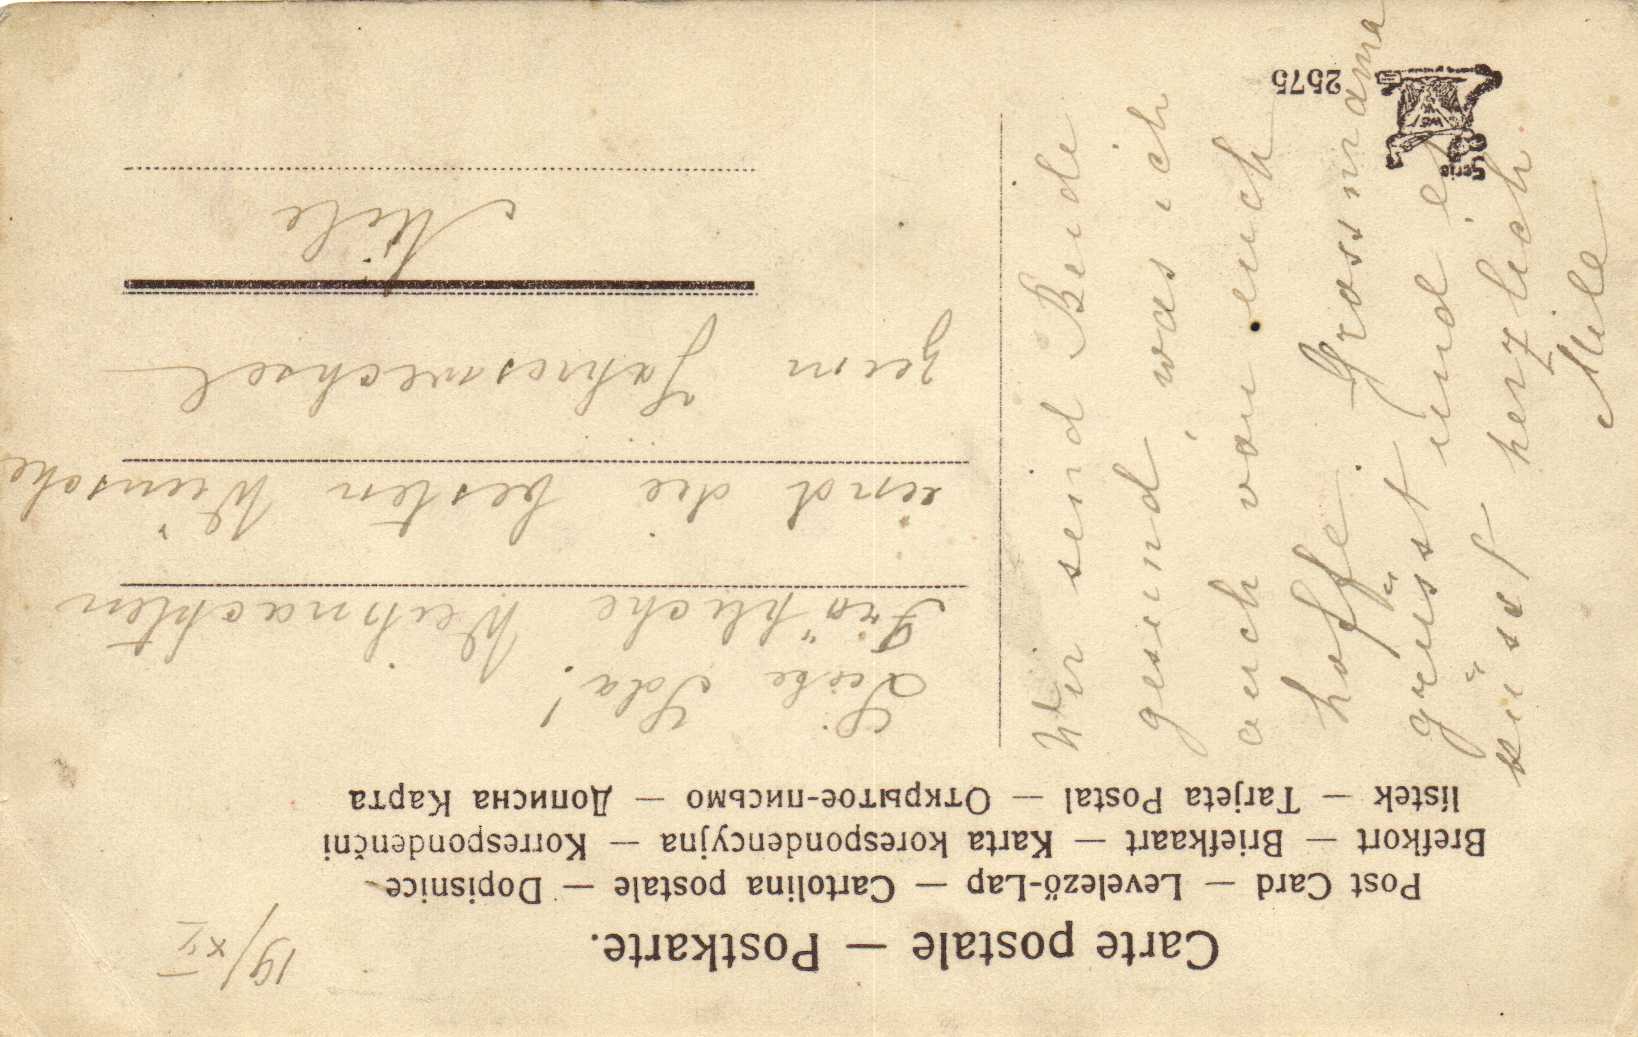 19/XII
Carte postale — Postkarte.
Post Card — Levelező-Lap — Cartolina postale — Dopisnice
Brefkort — Briefkaart — Karta korespondencyjna — Korrespondenční
lístek — Tarjeta Postal — Открытое-письмо — Дописна Карта
Liebe Ida!
Fröhliche Weihnachten
und die besten Wünsche
zum Jahreswechsel
Mile
Wir send Beide
gesund, was ich
auch von euch
hoffe. Grossmama
grüsst und
küsst herzlich
Mile
Serie
2575